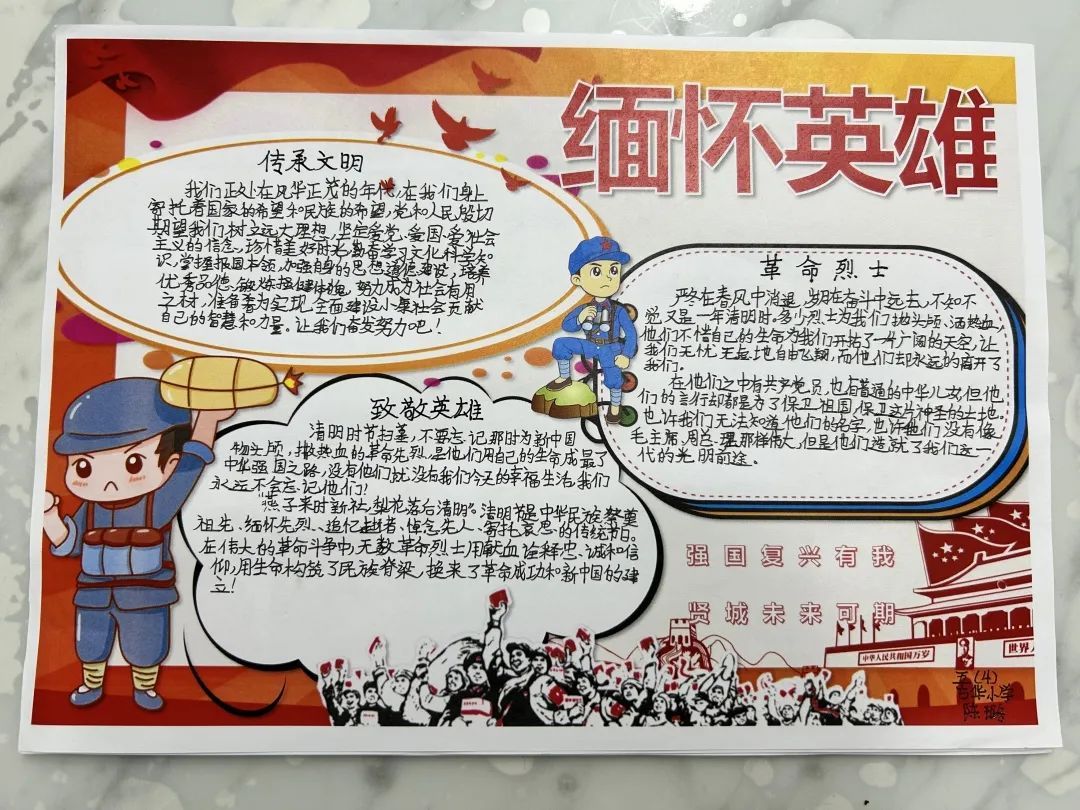 缅怀英雄
传承文明
我们正处在风华正茂的年代,在我们身上
寄托着国家的希望和民族的希望,党和人民殷切
期望我们,树立远大理想,坚定爱党、爱国、爱社会
主义的信念,珍惜美好时光,勤奋学习文化科学知
识,掌握报国本领,加强自身的思想道德建设,培养
优秀品德,锻炼强健体魄,努力成为社会有用
之材,准备着为实现全面建设小康社会贡献
自己的智慧和力量。让我们奋发努力吧!
革命烈士
严冬在春风中消退,岁月在奋斗中远去,不知不
觉,又是一年清明时。多少烈士为我们抛头颅、洒热血,
他们不惜自己的生命为我们开拓了一片广阔的天空,让
我们无忧无虑地自由飞翔,而他们却永远的离开了
我们。
在他们之中有共产党员,也有普通的中华儿女,但他
们的言行却都是为了保卫祖国,保卫这片神圣的土地。
也许我们无法知道他们的名字,也许他们没有像
毛主席、周总理那样伟大,但是他们造就了我们这一
代的光明前途。
致敬英雄
清明时节扫墓,不要忘记那时为新中国
抛头颅,撒热血的革命先烈,是他们用自己的生命成最了
中华强国之路,没有他们就没有我们今天的幸福生活,我们
永远不会忘记他们!
“燕子来时新社,梨花落后清明”。清明节是中华民族祭奠
祖先、缅怀先烈、追忆逝者、悼念先人、寄托哀思的传统节日。
在伟大的革命斗争中,无数革命烈士用献血诠释忠诚和信
仰,用生命构筑了民族脊梁,换来了革命成功和新中国的建
立!
强国复兴有我
贤城未来可期
中华人民共和国万岁
世界
五(4)
高华小学
陈